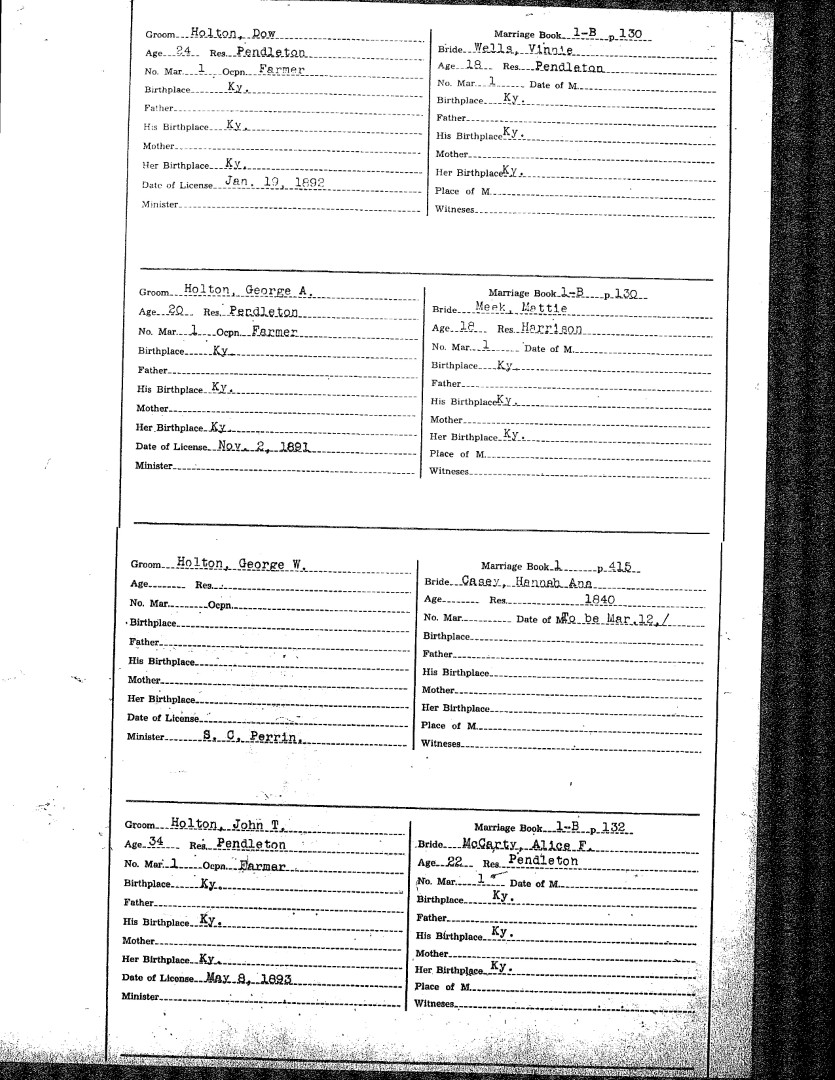 Groom Holton, Dow
Age 24 Res. Pendleton
No. Mar. 1 Ocpn. Farmer
Birthplace Ky.
Father
His Birthplace Ky.
Mother
Her Birthplace Ky.
Date of License Jan. 19, 1892
Minister
Marriage Book 1-B p. 130
Bride Wells, Vinnie
Age 18 Res. Pendleton
No. Mar. 1 Date of M.
Birthplace Ky.
Father
His Birthplace Ky.
Mother
Her Birthplace Ky.
Place of M.
Witneses
Groom Holton, George A.
Age 20 Res. Pendleton
No. Mar. 1 Ocpn. Farmer
Birthplace Ky
Father
His Birthplace Ky.
Mother
Her Birthplace Ky
Date of License Nov. 2, 1891
Minister
Marriage Book 1-B p. 130
Bride Meek, Mattie
Age 18 Res. Harrison
No. Mar. 1 Date of M.
Birthplace Ky
Father
His Birthplace Ky.
Mother
Her Birthplace Ky.
Place of M.
Witneses
Groom Holton, George W.
Age Res.
No. Mar. Ocpn.
Birthplace
Father
His Birthplace
Mother
Her Birthplace
Date of License
Minister S. C. Perrin.
Marriage Book 1 p. 415
Bride Casey, Hannah Ann
Age Res. 1840
No. Mar. Date of M. To be Mar.12,/
Birthplace
Father
His Birthplace
Mother
Her Birthplace
Place of M.
Witneses
Groom Holton, John T.
Age 34 Res. Pendleton
No. Mar. 1 Ocpn. Farmer
Birthplace Ky.
Father
His Birthplace Ky.
Mother
Her Birthplace Ky.
Date of License May 8, 1893
Minister
Marriage Book 1-B p. 132
Bride McCarty, Alice F.
Age 22 Res. Pendleton
No. Mar. 1 Date of M.
Birthplace Ky.
Father
His Birthplace Ky.
Mother
Her Birthplace Ky.
Place of M.
Witneses